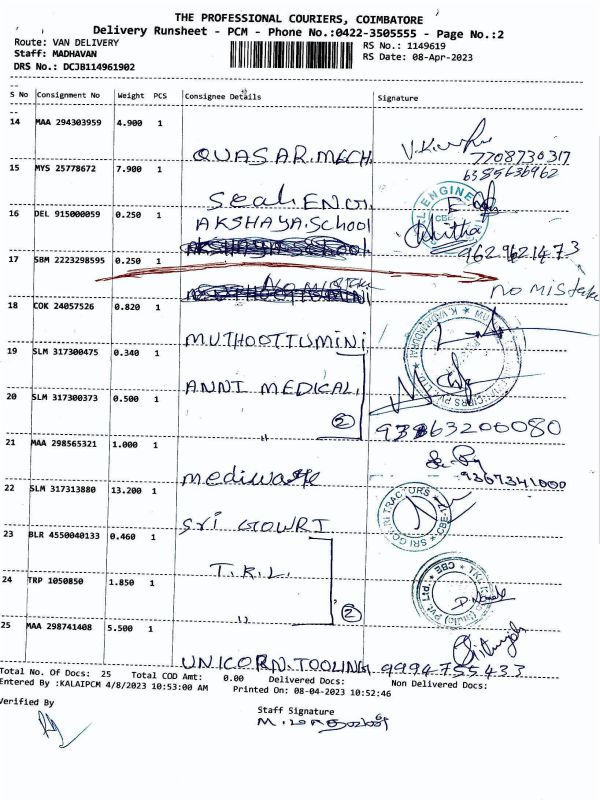 THE PROFESSIONAL COURIERS, COIMBATORE
Delivery Runsheet - PCM - Phone No.:0422-3505555 - Page No.:2
Route: VAN DELIVERY
RS No.: 1149619
Staff: MADHAVAN
RS Date: 08-Apr-2023
DRS No.: DCJB114961902
S No Consignment No Weight PCS Consignee Details Signature
14 MAA 294303959 4.900 1
QUASAR.MECH
7708730317
15 MYS 25778672 7.900 1
6385636962
Seal ENGI
16 DEL 915000059 0.250 1
AKSHAYA.School
AKSHAYA School
9629621473
17 SBM 2223298595 0.250 1
No mistake
no mistake
18 COK 24057526 0.820 1
MUTHOOTTUMINI
19 SLM 317300475 0.340 1
ANNI MEDICAL
20 SLM 317300373 0.500 1
"
2
21 MAA 298565321 1.000 1
mediwaste
9367341000
22 SLM 317313880 13.200 1
Sri GOWRI
SRI GOWRI TRACTORS
23 BLR 4550040133 0.460 1
T.R.L.
24 TRP 1050850 1.850 1
"
2
25 MAA 298741408 5.500 1
UNICORN.TOOLING 9994755433
Total No. Of Docs: 25 Total COD Amt: 0.00 Delivered Docs: Non Delivered Docs:
Entered By :KALAIPCM 4/8/2023 10:53:00 AM Printed On: 08-04-2023 10:52:46
Verified By
Staff Signature